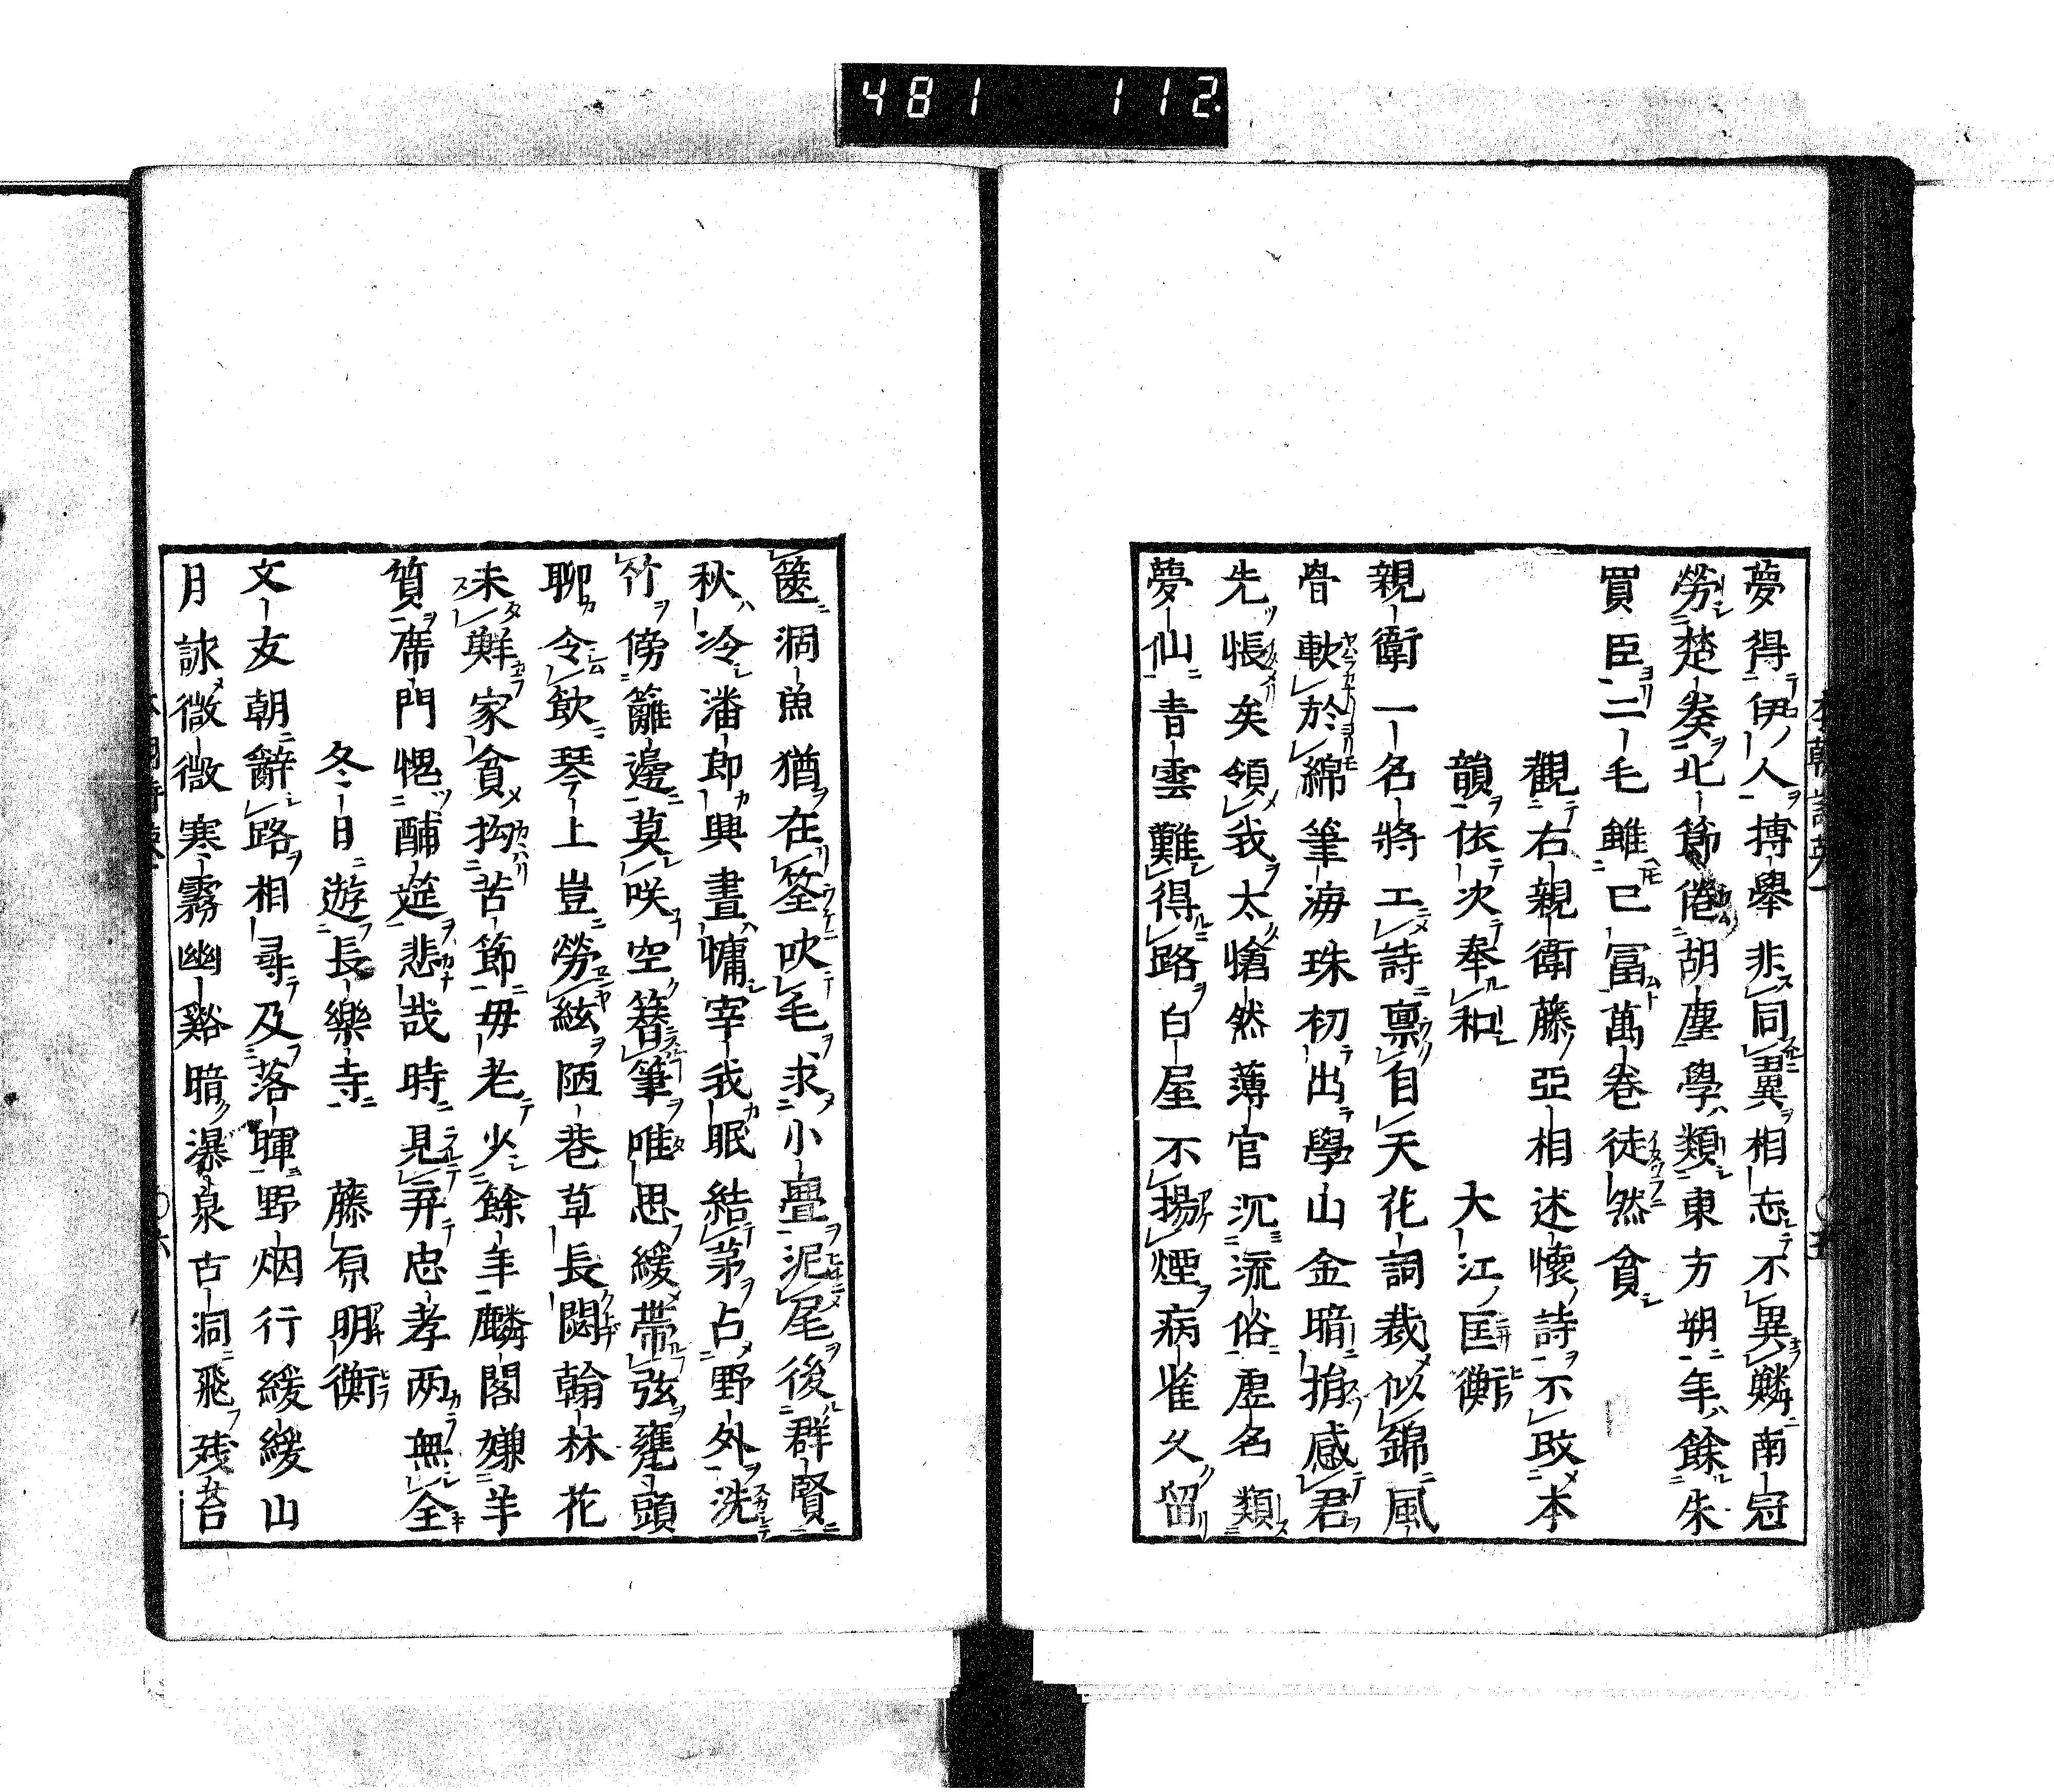 481 112
夢得伊人搏擧悲同翼相忘不異鱗南冠
勞楚奏北節倦胡塵學類東方朔年餘朱
買臣二毛雖已冨萬卷徒然貧
觀右親衛藤亞相述懷詩不改本
韻依次奉和 大江匡衡
親衛一名將工詩禀自天花詞裁似錦風
骨軟於綿筆海珠初出學山金暗捐感君
先悵矣領我太愴然薄官沉流俗虚名類
夢仙青雲難得路白屋不揚煙病雀久留
篋涸魚猶在筌吹毛求小疊泥尾後群賢
秋冷潘郎興晝慵宰我眠結茅占野外洗
竹傍籬邊莫咲空簪筆唯思緩帶弦甕頭
聊令飲琴上豈勞絃陋巷草長閟翰林花
未鮮家貧拘苦節毋老少餘年麟閣嫌羊
質席門愧酺筵悲哉時見弃忠孝两無全
冬日遊長樂寺 藤原明衡
文友朝辭路相尋及落暉野烟行緩緩山
月詠微微寒霧幽谿暗瀑泉古洞飛残苔